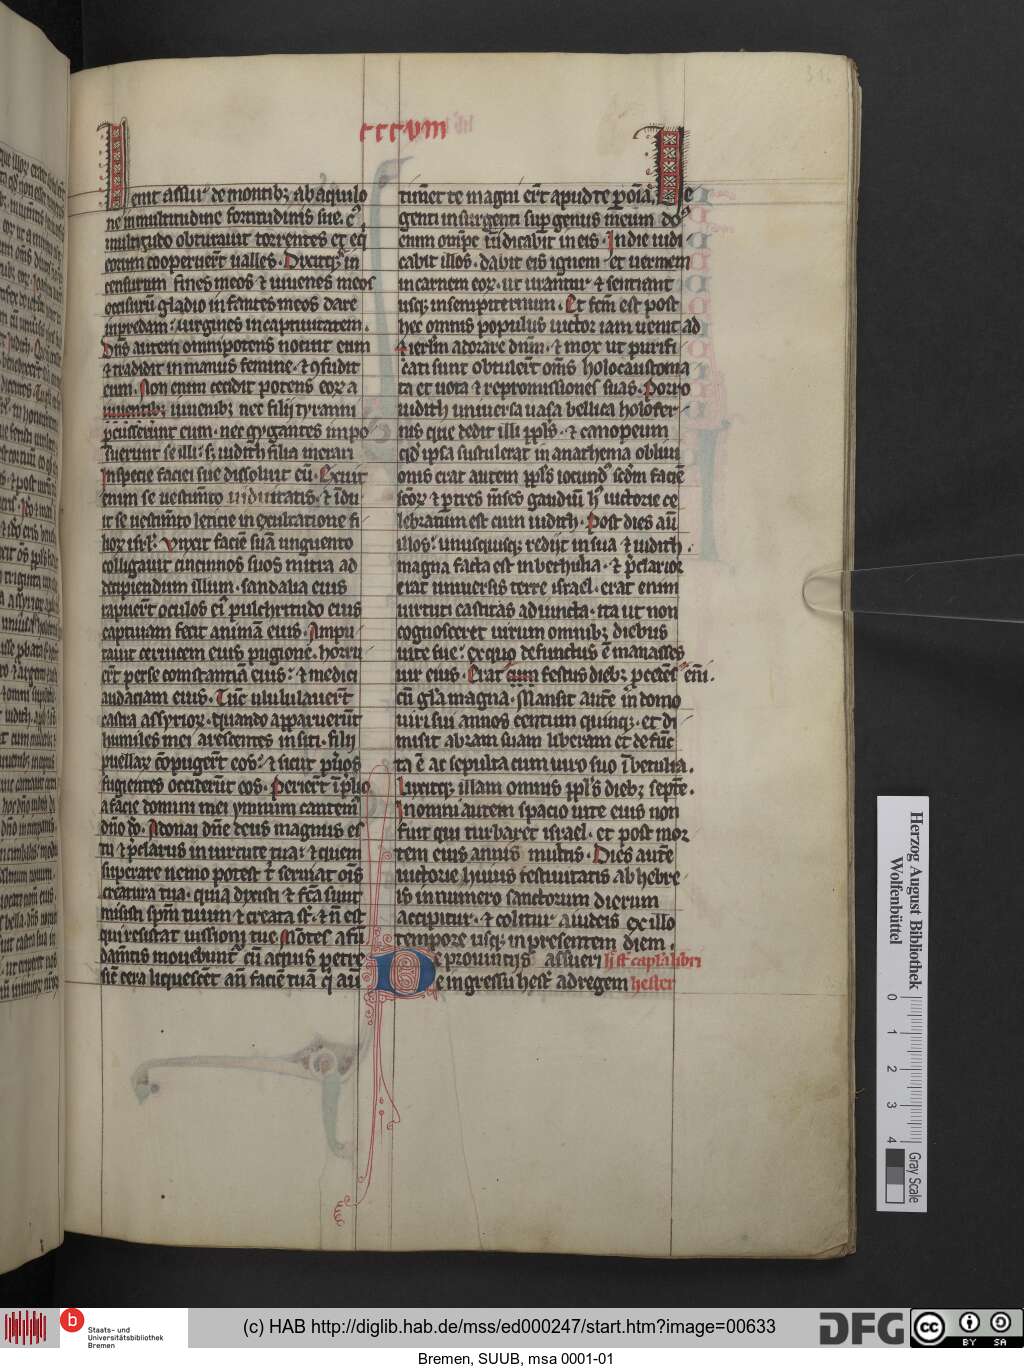 cccvııı
venit assur de montibꝫ ab aquilo
ne in multitudine fortitudinis sue. cꝰ
multitudo obturauit torrentes et eq̄
eorum cooperuer̄t ualles. Dixitqꝫ in
censurum fines meos ⁊ iuuenes meos
occisurū gladio infantes meos dare
in predam: uirgines in captiuitatem.
Dn̄s autem omnipotens nocuit eum
⁊ tradidit in manus femine. ⁊ ꝯfudit
eum. Non enim cecidit potens eoꝝ a
iuuenibꝫ nec filii tyranni
percusserunt eum. nec gygantes impo
suerunt se illi: s; iudith filia merari
In specie faciei sue dissoluit eū. Exuit
enim se uestimēto uiduitatis. ⁊ īdu
it se uestimēto leticie in exultatione fi
lioꝝ isrl̄. Vnxit faciē suā unguento
colligauit cincinnos suos mitra ad
decipiendum illum. sandalia eius
rapuer̄t oculos eiꝰ pulchritudo eius
captiuam fecit animā eius. Ampu
tauit ceruicem eius pugione. horru
er̄t perse constantiā eius: ⁊ medici
audaciam eius. Tūc ululauer̄t
castra assyrioꝝ. quando apparuerūt
humiles mei arescentes in siti. filii
puellaꝝ cōpuger̄t eos: ⁊ sicut pueros
fugientes occiderūt eos. Perier̄t ī prelio
a facie domini mei ymnum cantem
dn̄o dō. Adonai dn̄e deus magnus es
tu ⁊ preclarus in uirtute tua: ⁊ quem
superare nemo potest t seruiat oīs
creatura tua. quia dixisti ⁊ fc̄a sunt
misisti spm̄ tuum ⁊ creata st̄. ⁊ n̄ est
qui resistat iussioni tue. Mōtes a fū
damtis mouebunt cū aquis petre
sic̄ cera liquescent an̄ faciē tuā qi aut̄
timent te magni er̄t apud te p oīa. Ve
genti insurgenti sup genus meum dos
enim omp̄s uīdicabit in eis. In die iudi
cabit illos. dabit eis ignem et uermem
in carnem eoꝝ. ut urantur ⁊ sentiant
usqꝫ in sempiternum. Et fcm̄ est post
hec omnis populus uictor iam uenit ad
ierlm̄ adorare dnm̄. ⁊ mox ut purifi
cati sunt obtuler̄t om̄s holocaustoma
ta et uota ⁊ repromissiones suas. Porro
iudith uniuersa uasa bellica holofer
nis que dedit illi ppl̄s. ⁊ canopeum
qd̄ ipsa sustulerat in anathema obliui
onis erat autem ppl̄s iocundꝰ scd̄m faciē
scōꝝ ⁊ p tres mēses gaudiū hꝰ uictorie ce
lebratum est cum iudith. Post dies aū
illos: unusquisqꝫ redijt in sua ⁊ iudith.
magna facta est in bethulia. ⁊ preclarior
erat uniuersis terre israel. erat enim
uirtuti castitas adiuncta. ita ut non
cognosceret uirum omnibꝫ diebus
uite sue: ex quo defunctus ē manasses
uir eius. Erat cum festus diebꝫ pcedēs enī.
cū gl̄a magnā. Mansit autē in domo
uiri sui annos centum quinqꝫ. et di
misit abram suam liberam et defūc
ta ē ac sepulta cum uiro suo ī betulia.
Luxitqꝫ illam omnis ppl̄s diebꝫ septē.
In omni autem spacio uite eius non
fuit qui turbaret israel. et post mor
tem eius annis multis. Dies autē
uictorie huius festiuitatis ab hebre
is in numero sanctorum dierum
accipitur. ⁊ colitur a iudeis ex illo
tempore usqꝫ in presentem diem.
De prouintijs assueri Ij st̄ capl̄a libri
De ingressu hest̄ ad regem hester
Herzog August Bibliothek
Wolfenbüttel
0 1 2 3 4
Gray Scale
b
Staats- und
Universitätsbibliothek
Bremen
(c) HAB http://diglib.hab.de/mss/ed000247/start.htm?image=00633
DFG
cc
BY SA
Bremen, SUUB, msa 0001-01